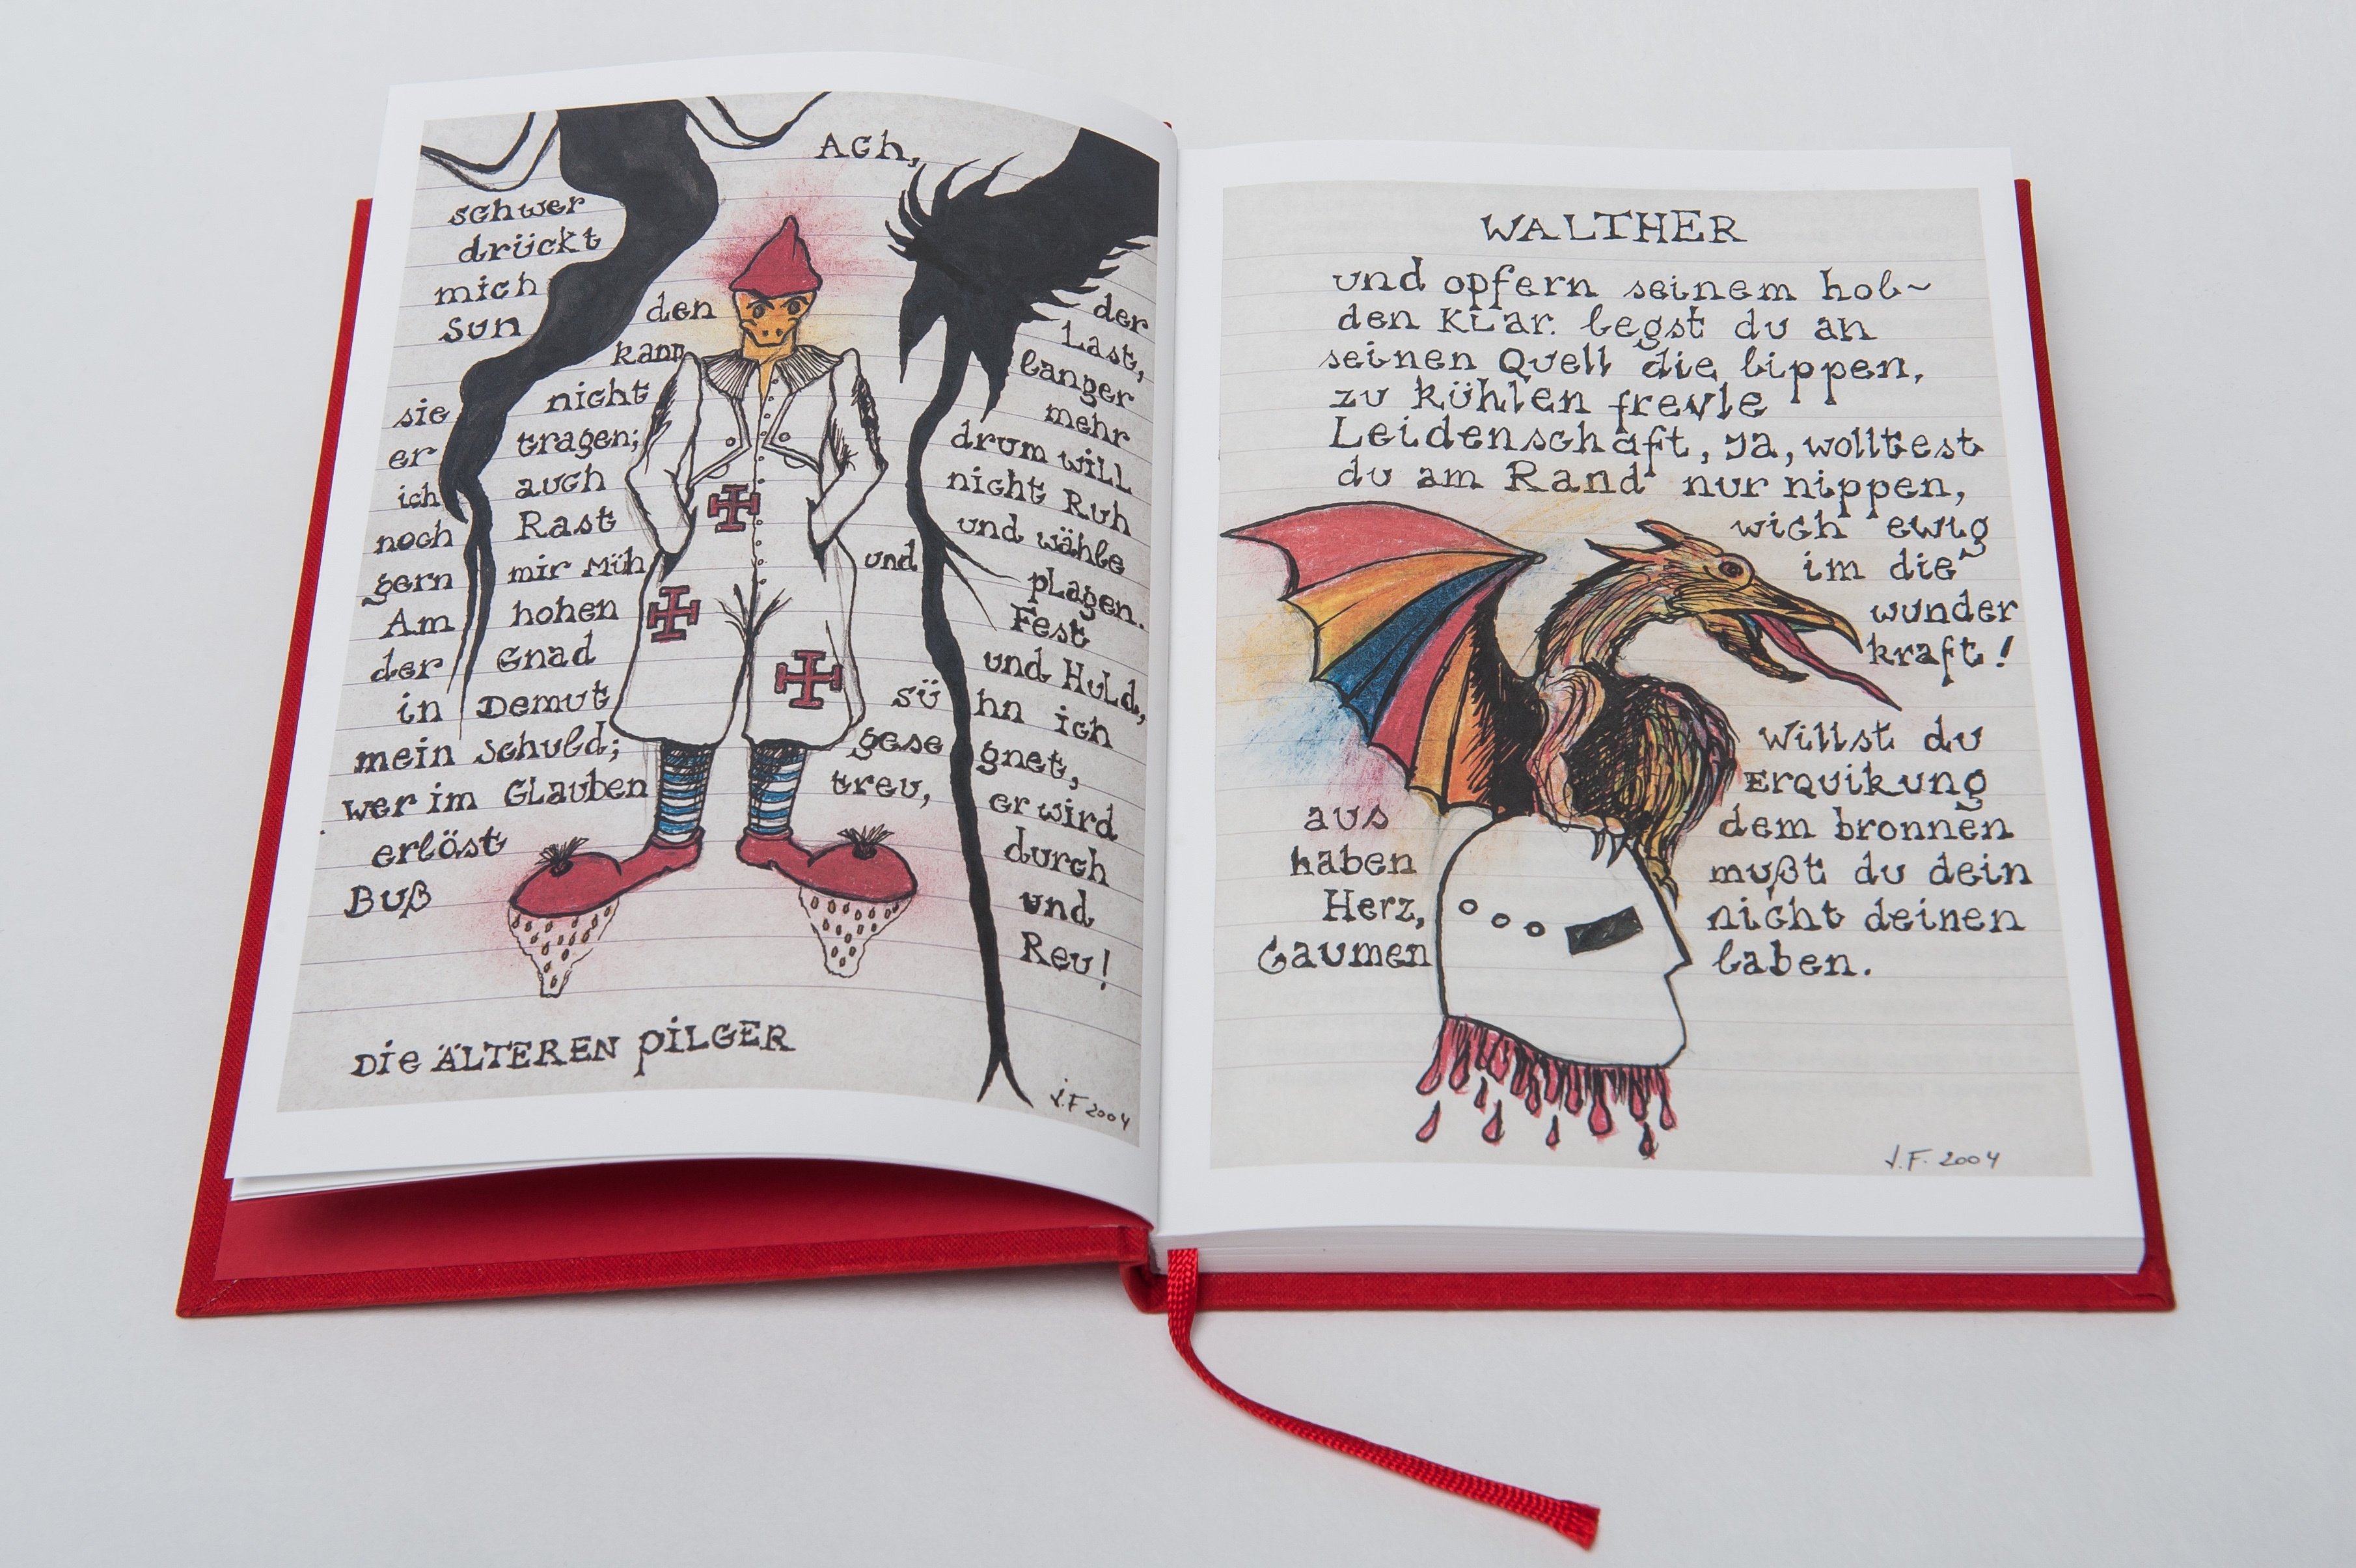 Ach,
schwer
drückt
mich
Sun den der
kann Last,
sie nicht langer
er tragen; mehr
ich auch drum will
noch Rast nicht Ruh
gern mir Müh und und wähle
Am hohen plagen.
der Gnad Fest
und Huld,
in Demut sü hn ich
mein schuld; gese gnet,
wer im Glauben treu, er wird
erlöst durch
Buß und
Reu!
Die ÄLTEREN PiLGER
J.F 2004
WALTHER
und opfern seinem hol~
den Klar. legst du an
seinen Quell die lippen,
zu kühlen frevle
Leidenschaft, ja, wolltest
du am Rand nur nippen,
wich ewig
im die
wunder
kraft!
Willst du
Erquikung
aus dem bronnen
haben mußt du dein
Herz, nicht deinen
Gaumen laben.
J.F. 2004